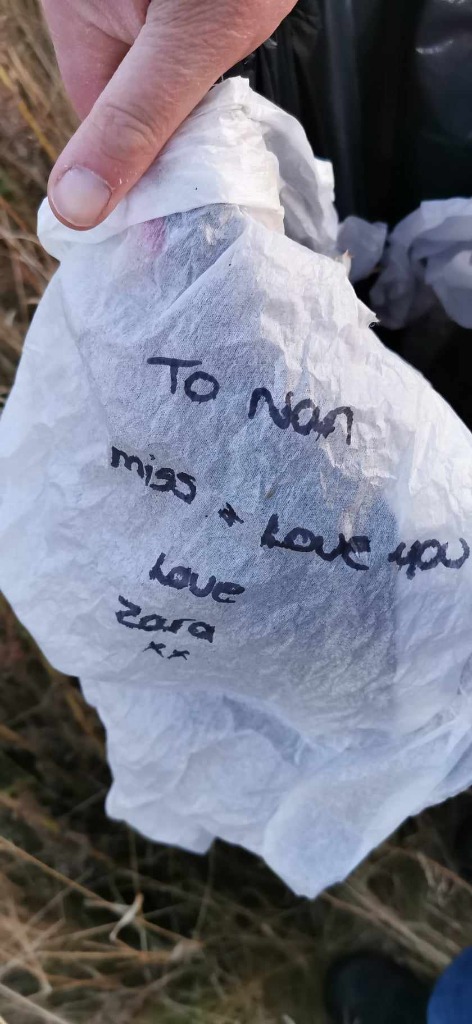 To Nan
miss + Love you
Love
Zara
xx